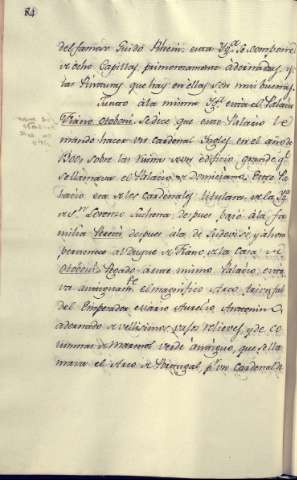 84
del famoso Guido Rheni: esta Ygª. se compone
de ocho Capillas, primorosamente adornadas, y
las Pinturas que hay en ellas son mui buenas.
Junto a la misma Ygª. está el Palacio
Fiano Otoboni. Se dice que este Palacio le
mando hacer un Cardenal Yngles, en el año de
sobre las ruinas de un edificio grande qº.
se llamava el Palacio de Domiciano. Este Pa-
lacio era de los Cardenales titulares de la Ygª.
de Sn. Lorenzo in Lucina, despues bajó a la fa-
milia Pereti, despues ala de Ludovisi, y ahora
pertenece al Duque de Fiano, de la Casa de
Otoboni. Pegado a este mismo Palacio, esta-
va antiguamte. el magnifico Arco triunfal
del Emperador Marco Aurelio Antonino
adornado de bellisimos vajos relieves, y de co-
lumnas de Marmol verde antiguo, que se lla-
mava el Arco de Portugal, pr. un Cardenal de